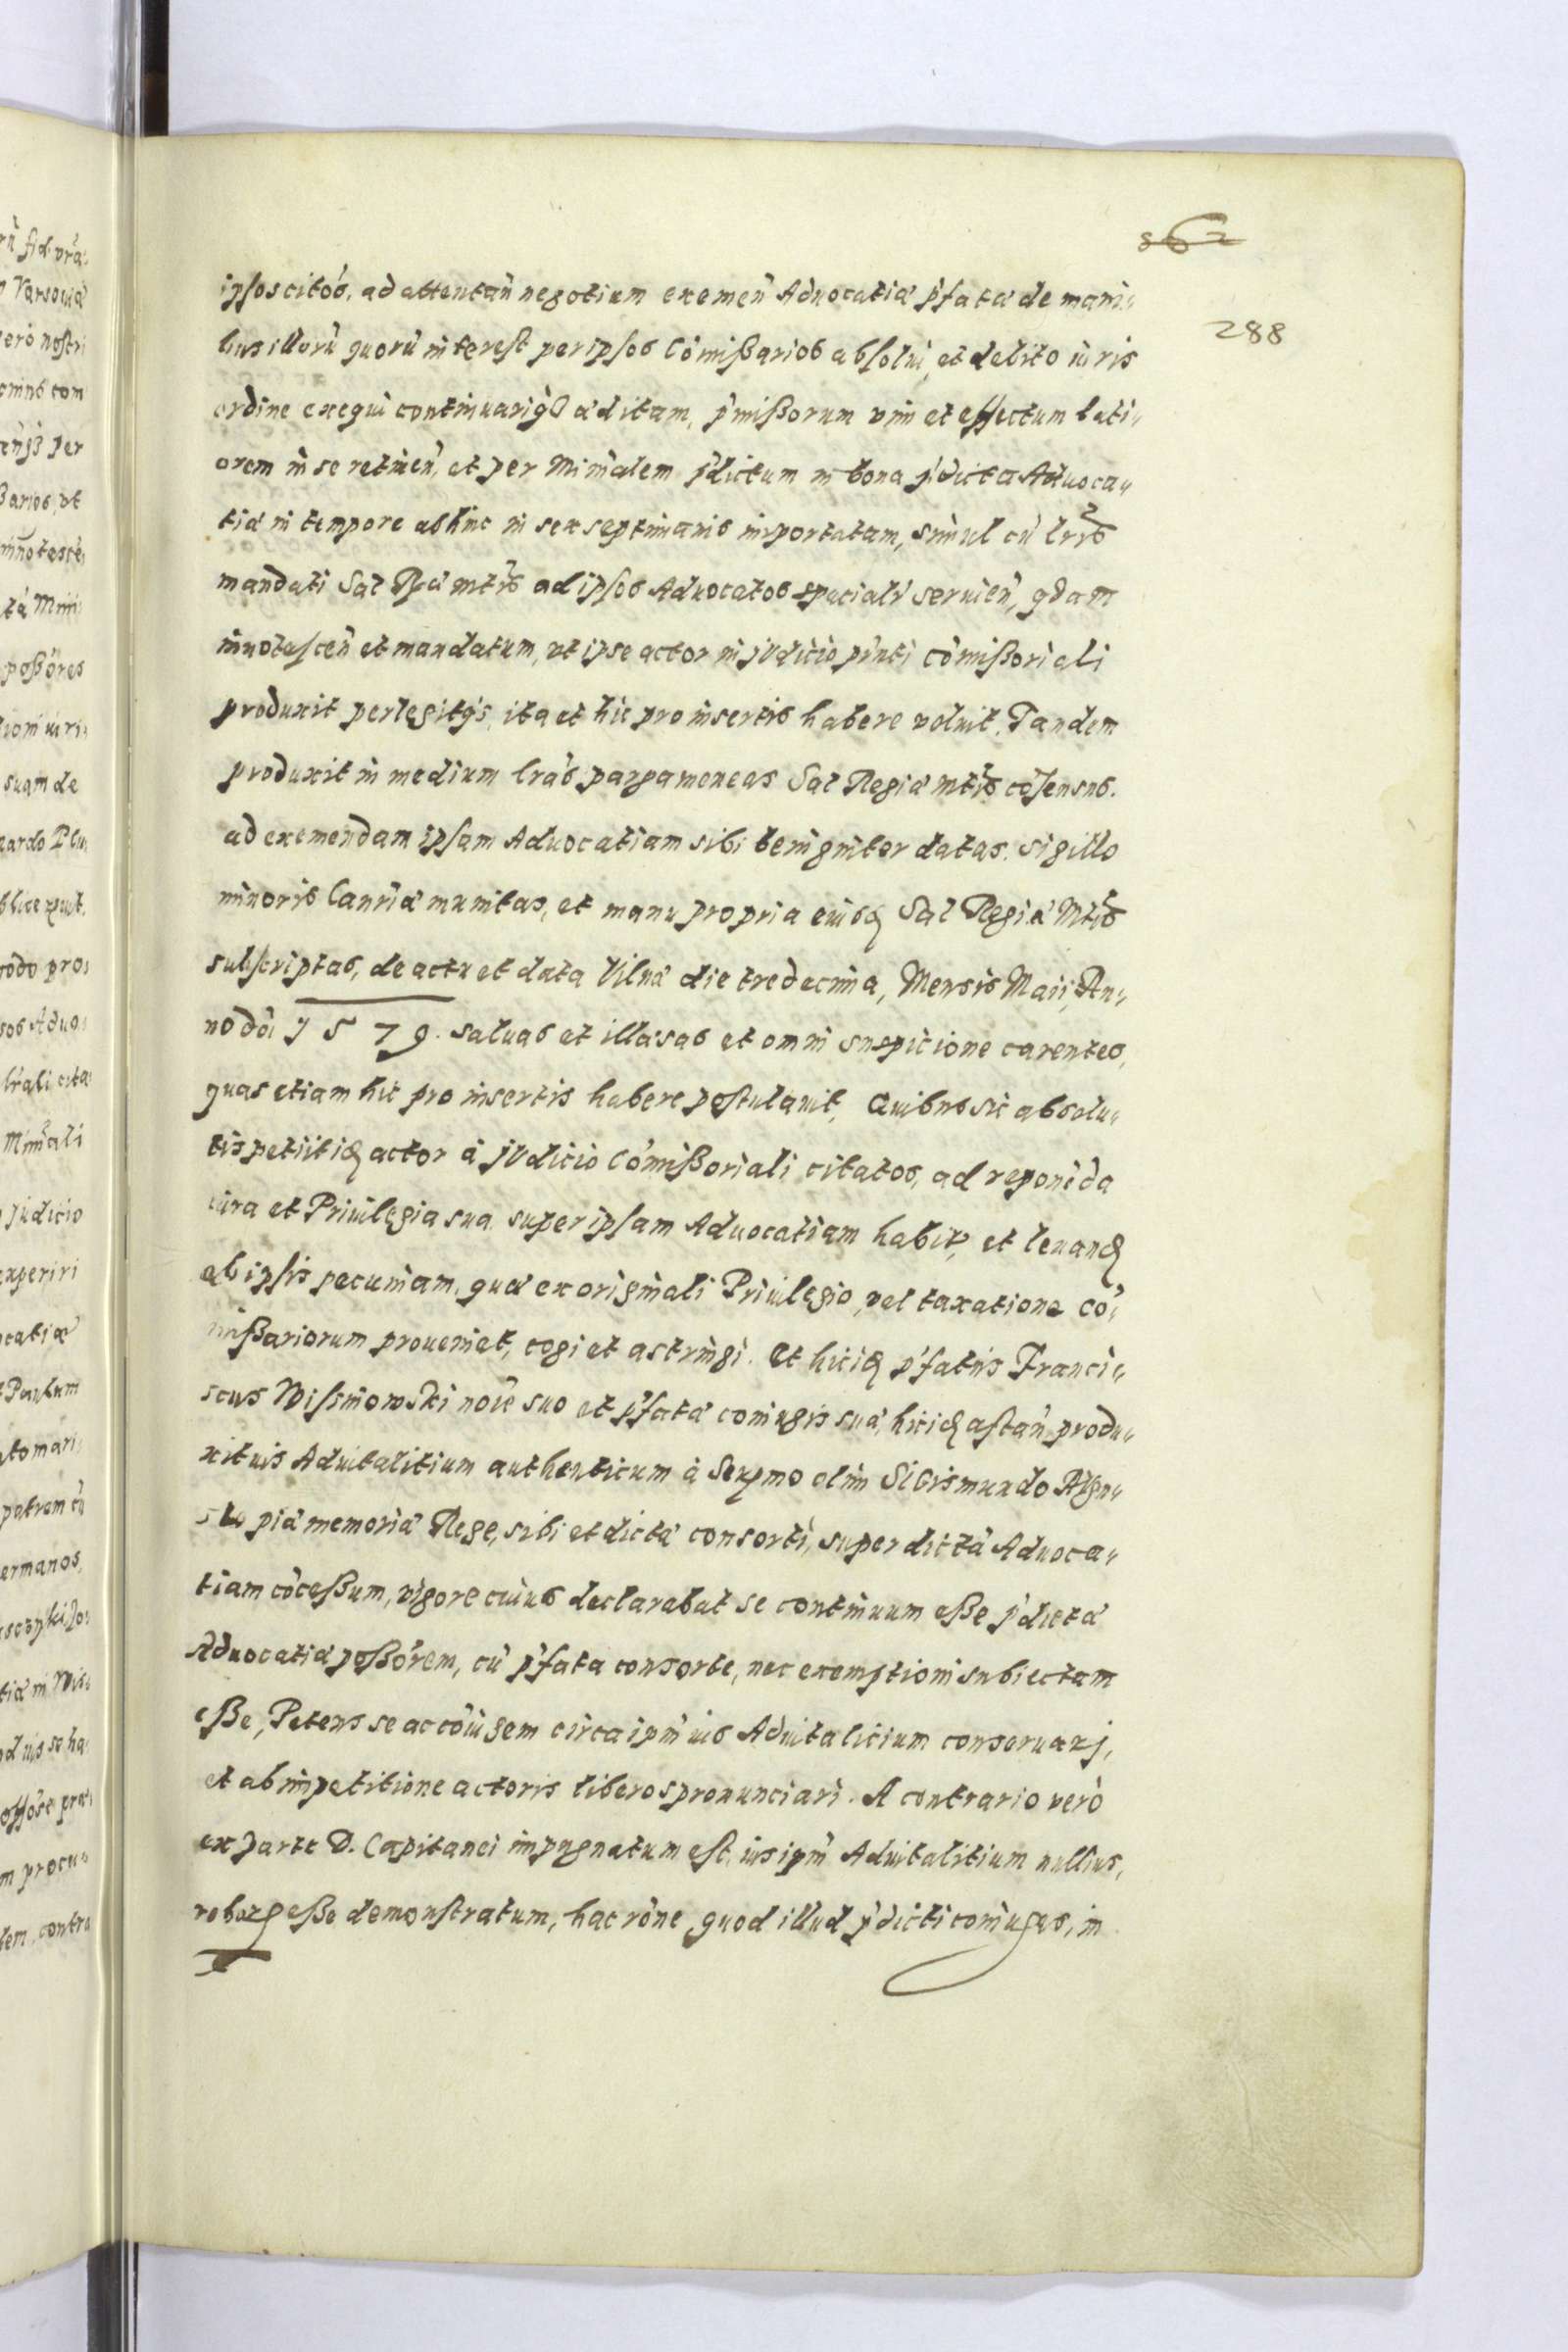 862
288
ipsos citos, ad attentań negotium exemeń Aduocatiæ p̃fatæ de mani„
bus illorũ quorũ interest per ipsos Com̃ißarios absolui, et debito iuris
ordine exequi continuariq̃ æditam, p̃mißorum vim et effectum lati„
orem in se retineñ, et per Minĩalem p̃dictum in bona p̃dictæ Aduoca„
tiæ in tempore ab hinc in sex septimanis importatam, simul cũ lr̃is
mandati Sac Rgæ mtĩs ad ipsos Aduocatos specialr̃ seruieñ, qdam
innotesceñ et mandatum, vt ipse actor in judicio p̃nti Com̃ißoriali
produxit perlegitq̃, ita et hic pro insertis habere voluit. Tandem
produxit in medium lrãs pargameneas Sac Regiæ mtĩs cõsensus.
ad exemendam ipsam Aduocatiam sibi benigniter datas, sigillo
minoris Canr̃iæ munitas, et manu propria eiusq̃ Sac Regiæ Mtĩs
subscriptas, de actu et data Vilnæ die tredecima, Mensis Maij, An„
no dõi 1579. saluas et illæsas et omni suspicione carentes,
quas etiam hic pro insertis habere postulauit, Quibus sic absolu„
tis petiit iq̃ actor à judicio Com̃ißoriali citatos, ad reponẽda
iura et Priuilegia sua super ipsam Aduocatiam habit̃, et leuandq̃
ab ipsis pecuniam, quæ ex originali Priuilegio, vel taxatione Cõ„
mißariorum proueniet, cogi et astringi. Et hic iq̃ p̃fatus Franci„
scus Wissinowski noĩe suo et p̃fatæ coniugis suæ, hic iq̃ astań produ„
xit ius Aduitalitium authenticum à Serermo olim Sigismundo Augu„
sto piæ memoriæ Rege, sibi et dictæ consorti, super dictã Aduoca„
tiam cõceßum, vigore cuius declarabat se continuum eße p̃dictæ
Aduocatiæ poßõrem, cũ p̃fata consorte, nec exemptioni subiectam
eße, Petens se ac cõiugem circa ipm̃ ius Aduitalicium conseruarj,
et ab impetitione actoris liberos pronunciari. A contrario verò
ex parte D. Capitanei impugnatum est, ius ipm̃ Aduitalitium nullius,
roboris eße demonstratum, hac rõne, quod illud p̃dicti coniuges, in